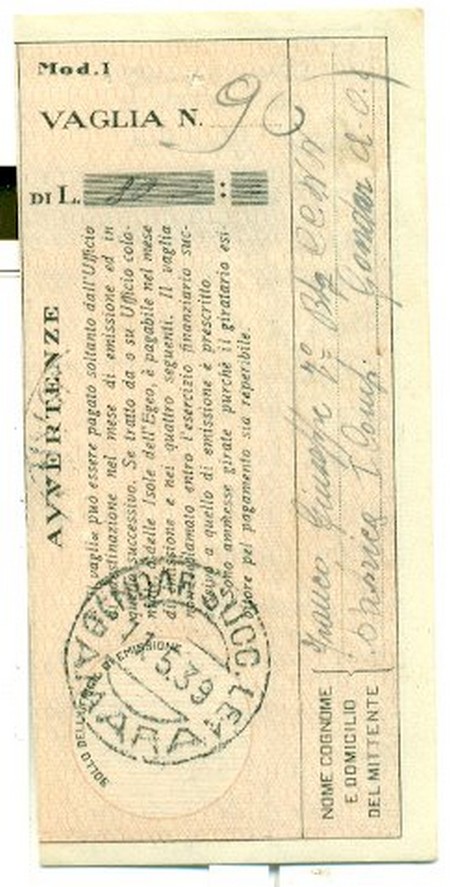 Mod. I
VAGLIA N. 90
DI L. :
AVVERTENZE
vaglia può essere pagato soltanto dall'Ufficio
destinazione nel mese di emissione ed in
quello successivo. Se tratto da o su Ufficio colo-
delle Isole dell'Egeo, è pagabile nel mese
di emissione e nei quattro seguenti. Il vaglia
non reclamato entro l'esercizio finanziario suc-
a quello di emissione è prescritto.
Sono ammesse girate purchè il giratario esi-
pel pagamento sia reperibile.
BOLLO DELL'UFFICIO DI EMISSIONE
GONDAR SUCC. LE
11.5.39
AMARA
NOME COGNOME
E DOMICILIO
DEL MITTENTE
Franco Giuseppe
I Comp. Gondar A.O.